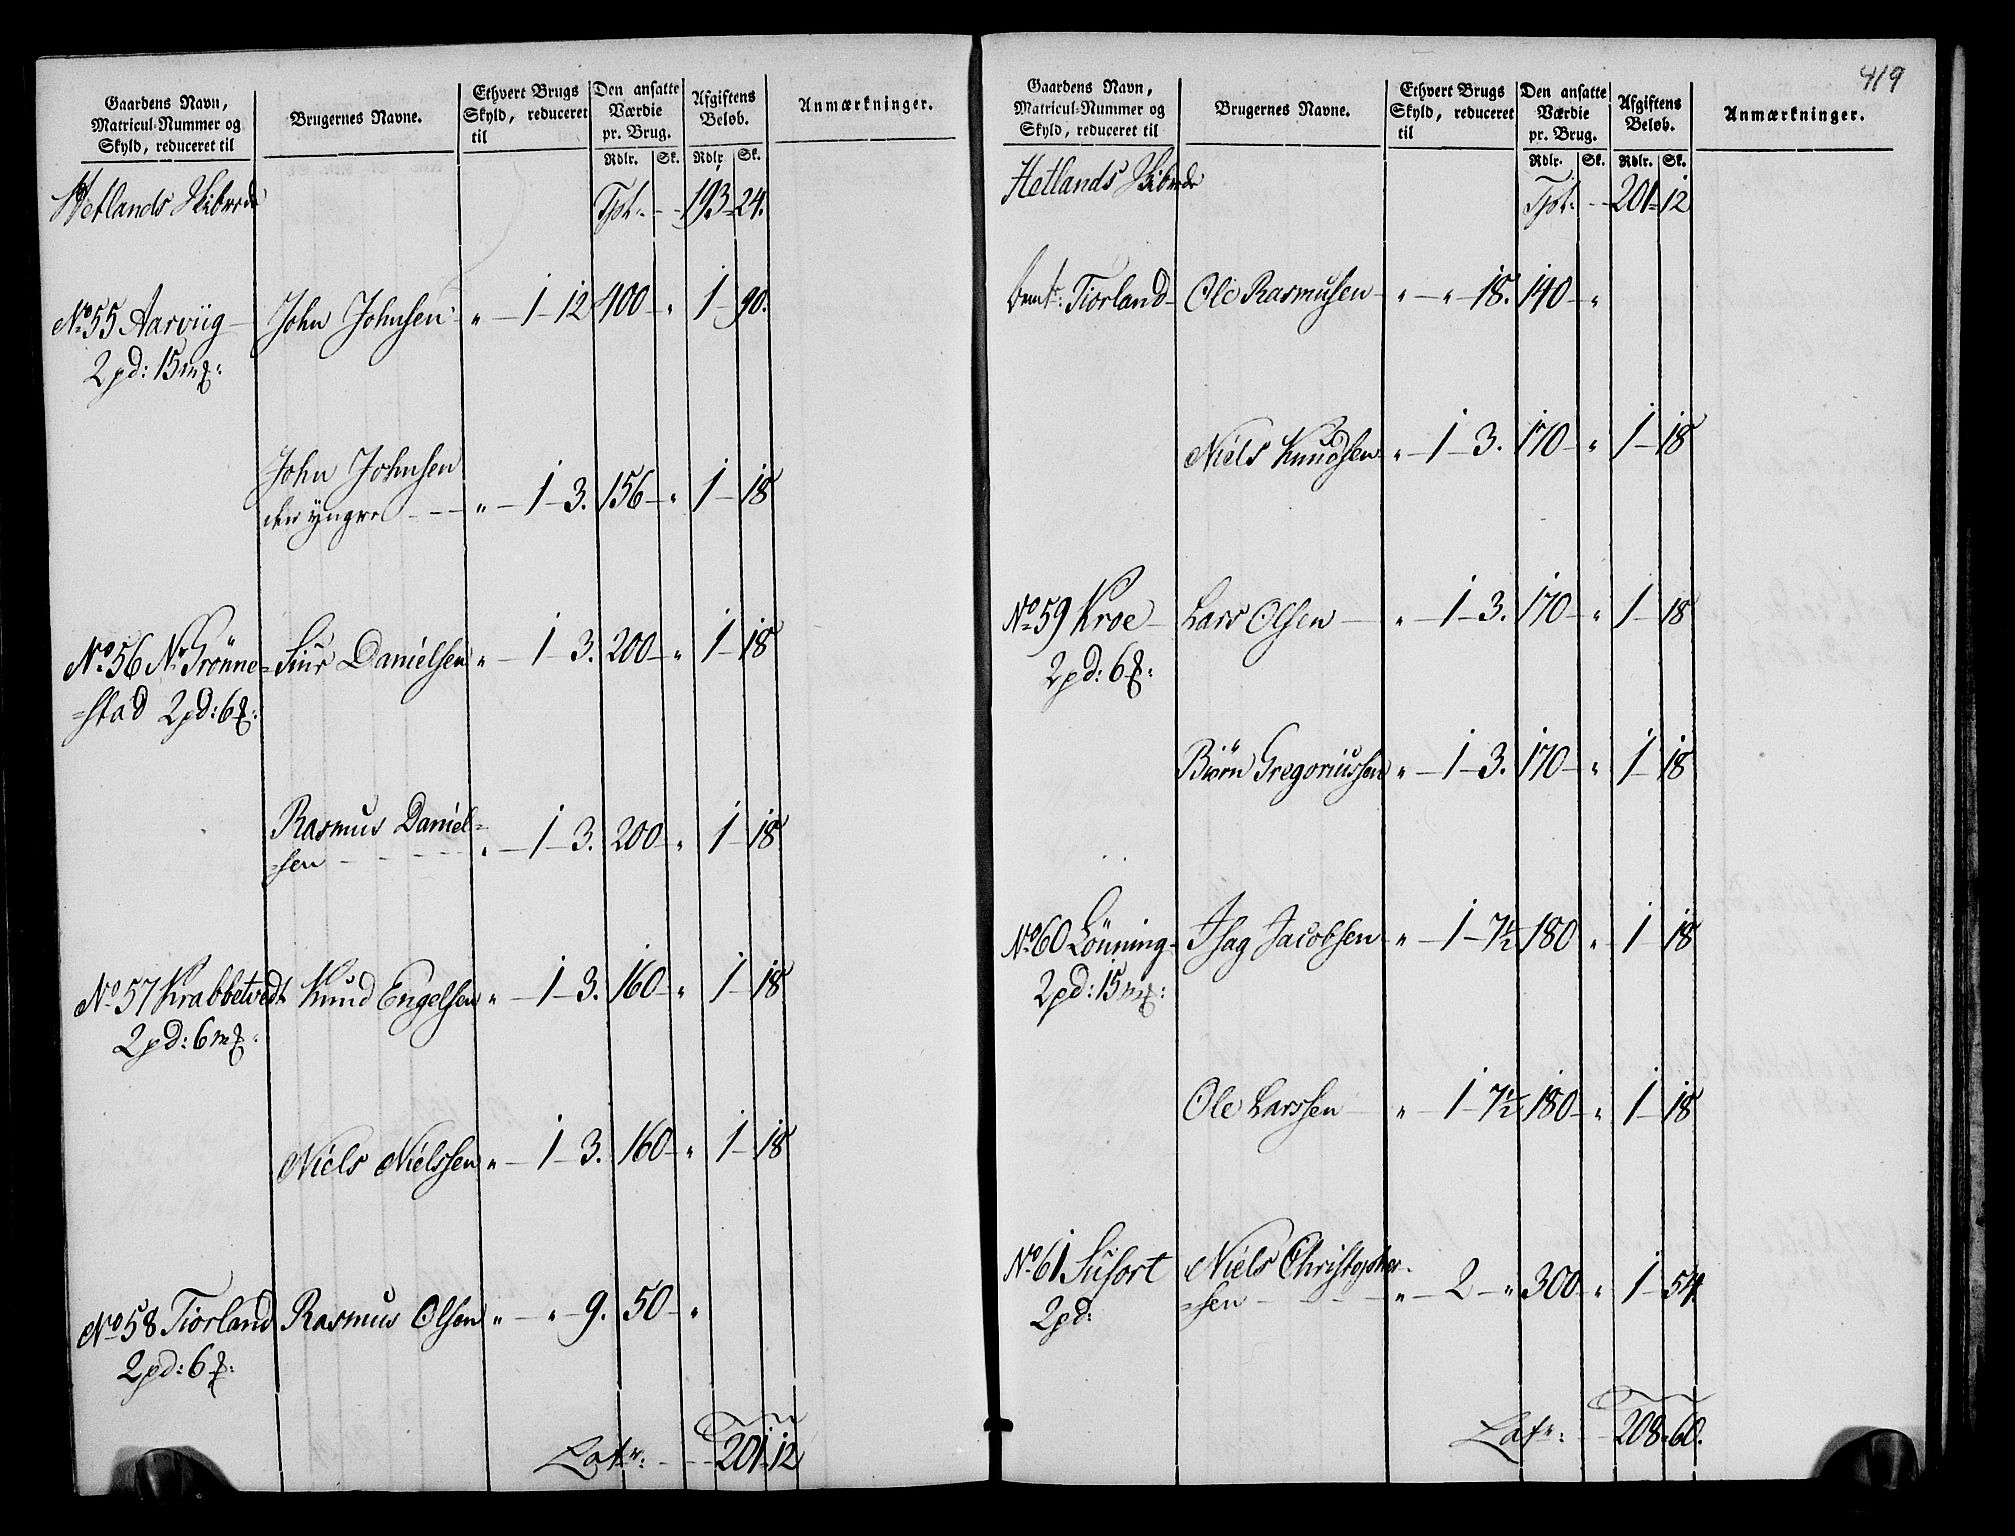 Gaardens Navn,
Matricul-Nummer og
Skyld, reduceret til
Brugernes Navne.
Ethvert Brugs
Skyld, reduceret
til
Den ansatte
Værdie
pr. Brug.
Afgiftens
Beløb.
Anmærkninger.
Rdlr. Sk. Rdlr. Sk.
Hetlands Skibrede Tpt: 193 - 24.
No. 55 Aarviig John Johnsen " - 1 - 12 400 - " 1 - 90.
2 pd: 15 m#:
John Johnsen
den yngre " - 1 - 3. 156 - " 1 - 18
No. 56 Nr. Grønne= Siur Danielsen " - 1 - 3. 200 - " 1 - 18
=stad 2 pd: 6 #:
Rasmus Daniel=
=sen " - 1 - 3. 200 - " 1 - 18
No. 57 Krabbetvedt Knud Engelsen " - 1 - 3. 160 - " 1 - 18
2 pd: 6 m#:
Niels Nielssen " - 1 - 3. 160 - " 1 - 18
No. 58 Tiorland Rasmus Olsen " - " - 9. 50 - "
2 pd: 6 #:
Latr: 201 - 12
419
Gaardens Navn,
Matricul-Nummer og
Skyld, reduceret til
Brugernes Navne.
Ethvert Brugs
Skyld, reduceret
til
Den ansatte
Værdie
pr. Brug.
Afgiftens
Beløb.
Anmærkninger.
Rdlr. Sk. Rdlr. Sk.
Hetlands Skibrede Tpt: 201 - 12
bemt: Tiorland Ole Rasmusen " - " - 18. 140 - "
Niels Knudsen " - 1 - 3. 170 - " 1 - 18
No. 59 Kroe Lars Olsen " - 1 - 3. 170 - " 1 - 18
2 pd: 6 #:
Biørn Gregoriussen " - 1 - 3. 170 - " 1 - 18
No. 60 Lönning Isag Jacobsen " - 1 - 7½ 180 " 1 - 18
2 pd: 15 m#:
Ole Larssen " - 1 - 7½ 180 - " 1 - 18
No. 61 Susort Niels Christopher=
2 pd: =sen " - 2 - " 300 - " 1 - 54
Latr: 208 - 60.